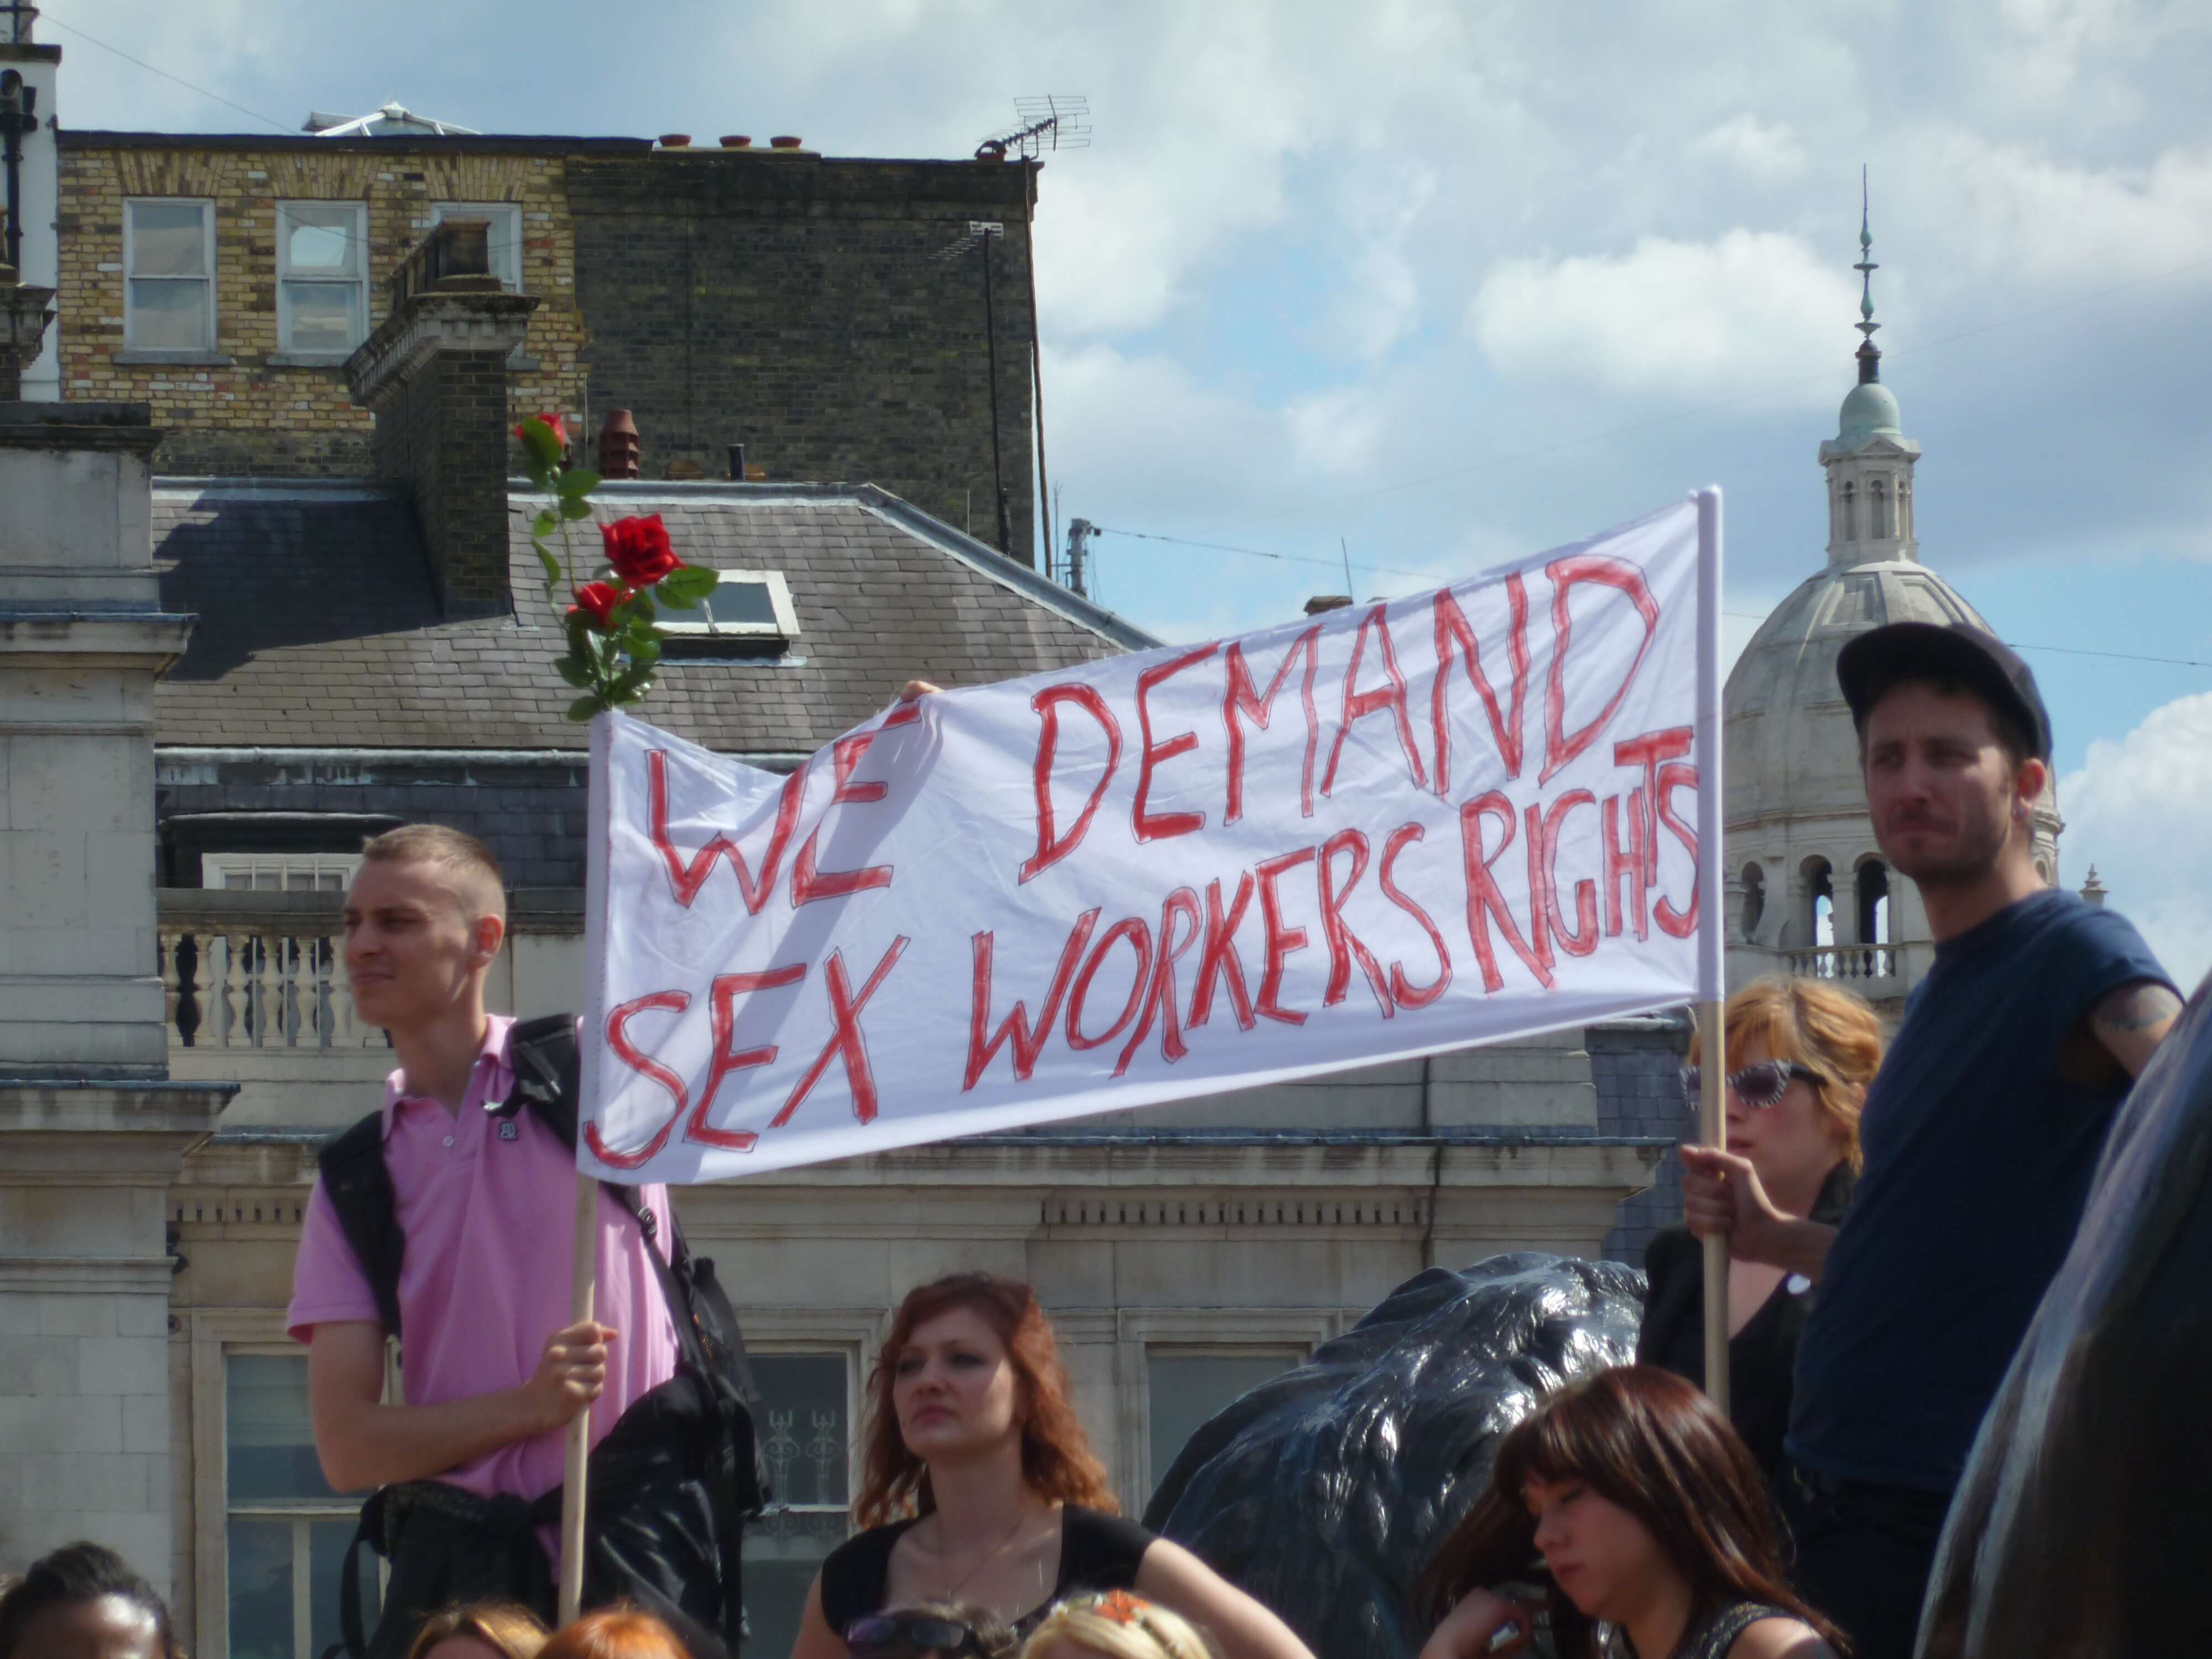 WE DEMAND
SEX WORKERS RIGHTS